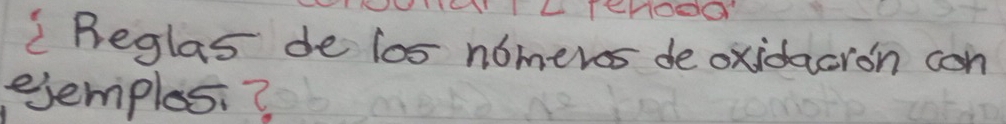 ¿Reglas de los números de oxidación con
ejemplos?